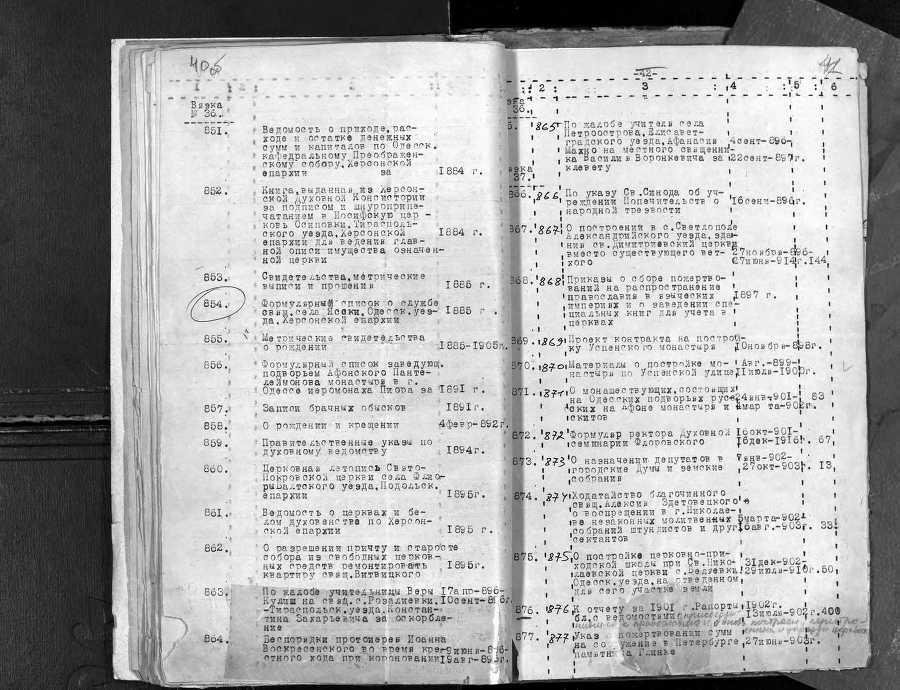 40б
1 2 3
Вязка
№ 36.
851. Ведомость о приходе, рас-
ходе и остатке денежных
сумм и капиталов по Одесск.
кафедральному Преображен-
скому собору, Херсонской
епархии за 1884 г.
852. Книга, выданная из Херсон-
ской Духовной Консистории
за подписом и шнуроприпе-
чатанием в Иосифскую цер-
ковь Осиповки, Тирасполь-
ского уезда, Херсонской
епархии для ведения глав-
ной описи имущества означен-
ной церкви 1884 г.
853. Свидетельства, метрические
выписи и прошения 1885 г.
854. Формулярный список о службе
свящ. села Ясски, Одесск. уез-
да, Херсонской епархии 1885 г.
855. Метрические свидетельства
о рождении 1885-1905г.
856. Формулярный список заведующ.
подворьем Афонского Панте-
леймонова монастыря в г.
Одессе иеромонаха Пиора за 1891 г.
857. Записи брачных обысков 1891г.
858. О рождении и крещении 4февр-892г.
859. Правительственные указы по
духовному ведомству 1894г.
860. Церковная летопись Свято-
Покровской церкви села Фло-
рыбалтского уезда, Подольск.
епархии 1895г.
861. Ведомость о церквах и бе-
лом духовенстве по Херсон-
ской епархии 1895 г.
862. О разрешении причту и старосте
собора из свободных церков-
ных средств ремонтировать 1895г.
квартиру свящ. Витвицкого
863. По жалобе учительницы Веры 17апр-896-
Кулиш на свящ. с. Розалиевки, 10сент-896г.
-Тираспольск. уезда, Констан-
тина Захарьевича за оскорбле-
ние
864. Беспорядки протоиерея Иоанна
Воскресенского во время крес- июня-896-
стного хода при короновании 19авг-896г.
-42-
42
2 3 4 5 6
865 По жалобе учитель села
Петроострова, Елисавет-
градского уезда, Афанасия 4сент-890-
Махно на местного священни-
ка Василия Воронкевича за 22сент-897г.
клевету
37.
866. 866 По указу Св. Синода об уч-
реждении Попечительств о 16сент-896г.
народной трезвости
867. 867 О построении в с. Светлополе
Александрийского уезда, зда-
ния св. Димитриевский церкви
вместо существующего вет- 27ноября-896-
хого 27июня-914г. 144
868. 868 Приказы о сборе пожертво-
ваний на распространение
православия в языческих 1897 г.
империях и о заведении спе-
циальных книг для учета в
церквах
869. 869 Проект контракта на построй-
ку Успенского монастыря 10ноября-898г.
870. 870 Материалы о постройке мо- 1Авг.-899-
настыря по Успенской улице, 11июля-1900г.
871. 871 О монашествующих, состоящих
на Одесских подворьях рус- 24янв-901- 83
ских на Афоне монастырей и 4марта-902г.
скитов
872. 872 Формуляр ректора Духовной 16окт-901-
семинарии Флоровского 16дек-916г. 67,
873. 873 О назначении депутатов в 7янв-902-
городские Думы и земские 27окт-903г. 13,
собрания
874. 874 Ходатайство благочинного
свящ. Алексия Эдетовецкого
о воспрещении в г. Николае-
ве незаконных молитвенных 5марта-902-
собраний штундистов и друг. 16авг.-903г. 33
сектантов
875. 875 О постройке церковно-при-
ходской школы при Св. Нико- 31дек-902-
лаевской церкви с. Беляевки, 29июля-910г. 50,
Одесск. уезда, на отведенном
для сего участке земли
876. 876 К отчету за 1901 г. Рапорты 1902г.
бл. с ведомостями 13июля-902г. 400
877. 877 Указ о пожертвовании сумм
на сооружение в Петербурге 27июня-903г.
памятника Глинке